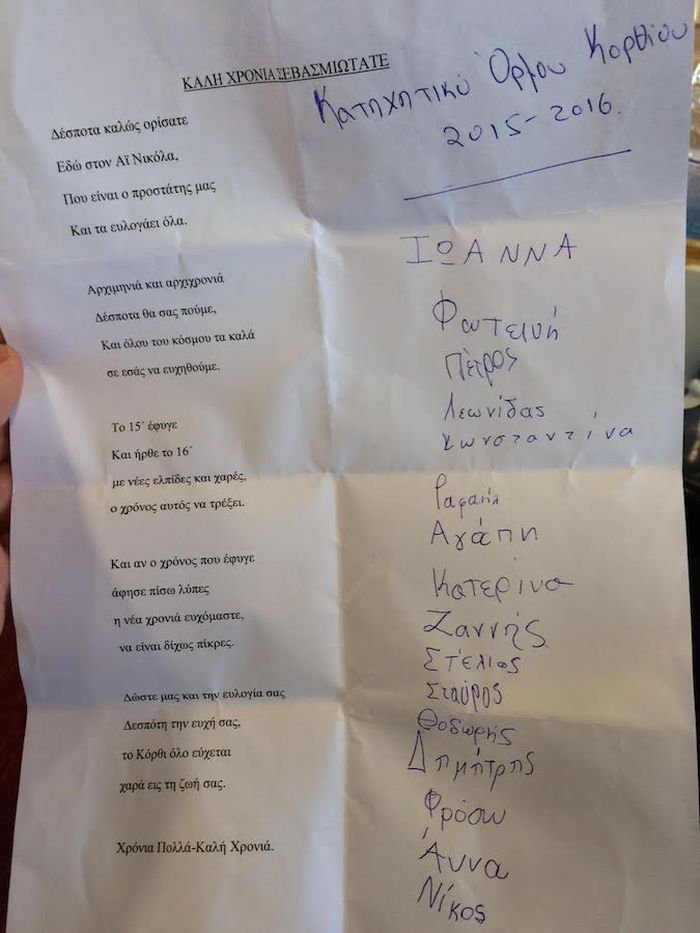 ΚΑΛΗ ΧΡΟΝΙΑ ΣΕΒΑΣΜΙΩΤΑΤΕ
Δέσποτα καλώς ορίσατε
Εδώ στον Αϊ Νικόλα,
Που είναι ο προστάτης μας
Και τα ευλογάει όλα.
Αρχιμηνιά και αρχιχρονιά
Δέσποτα θα σας πούμε,
Και όλου του κόσμου τα καλά
σε εσάς να ευχηθούμε.
Το 15΄ έφυγε
Και ήρθε το 16΄
με νέες ελπίδες και χαρές,
ο χρόνος αυτός να τρέξει.
Και αν ο χρόνος που έφυγε
άφησε πίσω λύπες
η νέα χρονιά ευχόμαστε,
να είναι δίχως πίκρες.
Δώστε μας και την ευλογία σας
Δεσπότη την ευχή σας,
το Κόρθι όλο εύχεται
χαρά εις τη ζωή σας.
Χρόνια Πολλά-Καλή Χρονιά.
Κατηχητικό Όρμου Κορθίου
2015-2016.
ΙΩΑΝΝΑ
Φωτεινή
Πέτρος
Λεωνίδας
Κωνσταντίνα
Ραφαήλ
Αγάπη
Κατερίνα
Ζαννής
Στέλιος
Σταύρος
Θοδωρής
Δημήτρης
Φρόσω
Άννα
Νίκος